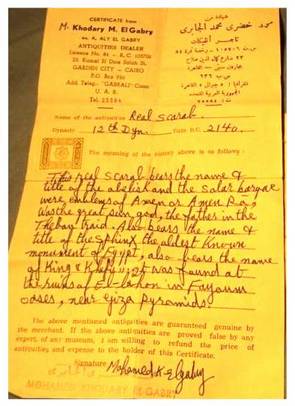 CERTIFICATE from
M. Khodary M. El Gabry
ex. A. ALY EL GABRY
ANTIQUITIES DEALER
Licence No. 81 - R.C. 105706
25 Kamal El Dine Salah St.
GARDEN CITY - CAIRO
P.O. Box
Add. Teleg. "GABRALI" Cairo
U. A. R.
Tel.
شهادة من
محمود خضري محمد الجابري
تاجر انتيكات
Name of the antiquities Real scarab.
Dynasty 12th Dyn. Date B.C. 2140.
The meaning of the history above is as follows :
This real scarab bears the name &
title of the obelisk and the solar barque
were emblems of Amen or Amen Ra,
was the great sun god, the father in the
Theban triad. Also bears the name &
title of the Sphinx the oldest known
monument of Egypt, also bears the name
of King "Khufu", it was found at
the ruins of El-Lahon in Fayoum
oases, near Giza pyramids.
The above mentioned antiquities are guaranteed genuine by
the merchant. If the above antiquities are proved false by any
expert, of any museum, I am willing to refund the price of
antiquities and expense to the holder of this Certificate.
Signature Mohamed A. El gabry
MOHAMED KHODARY EL GABRY